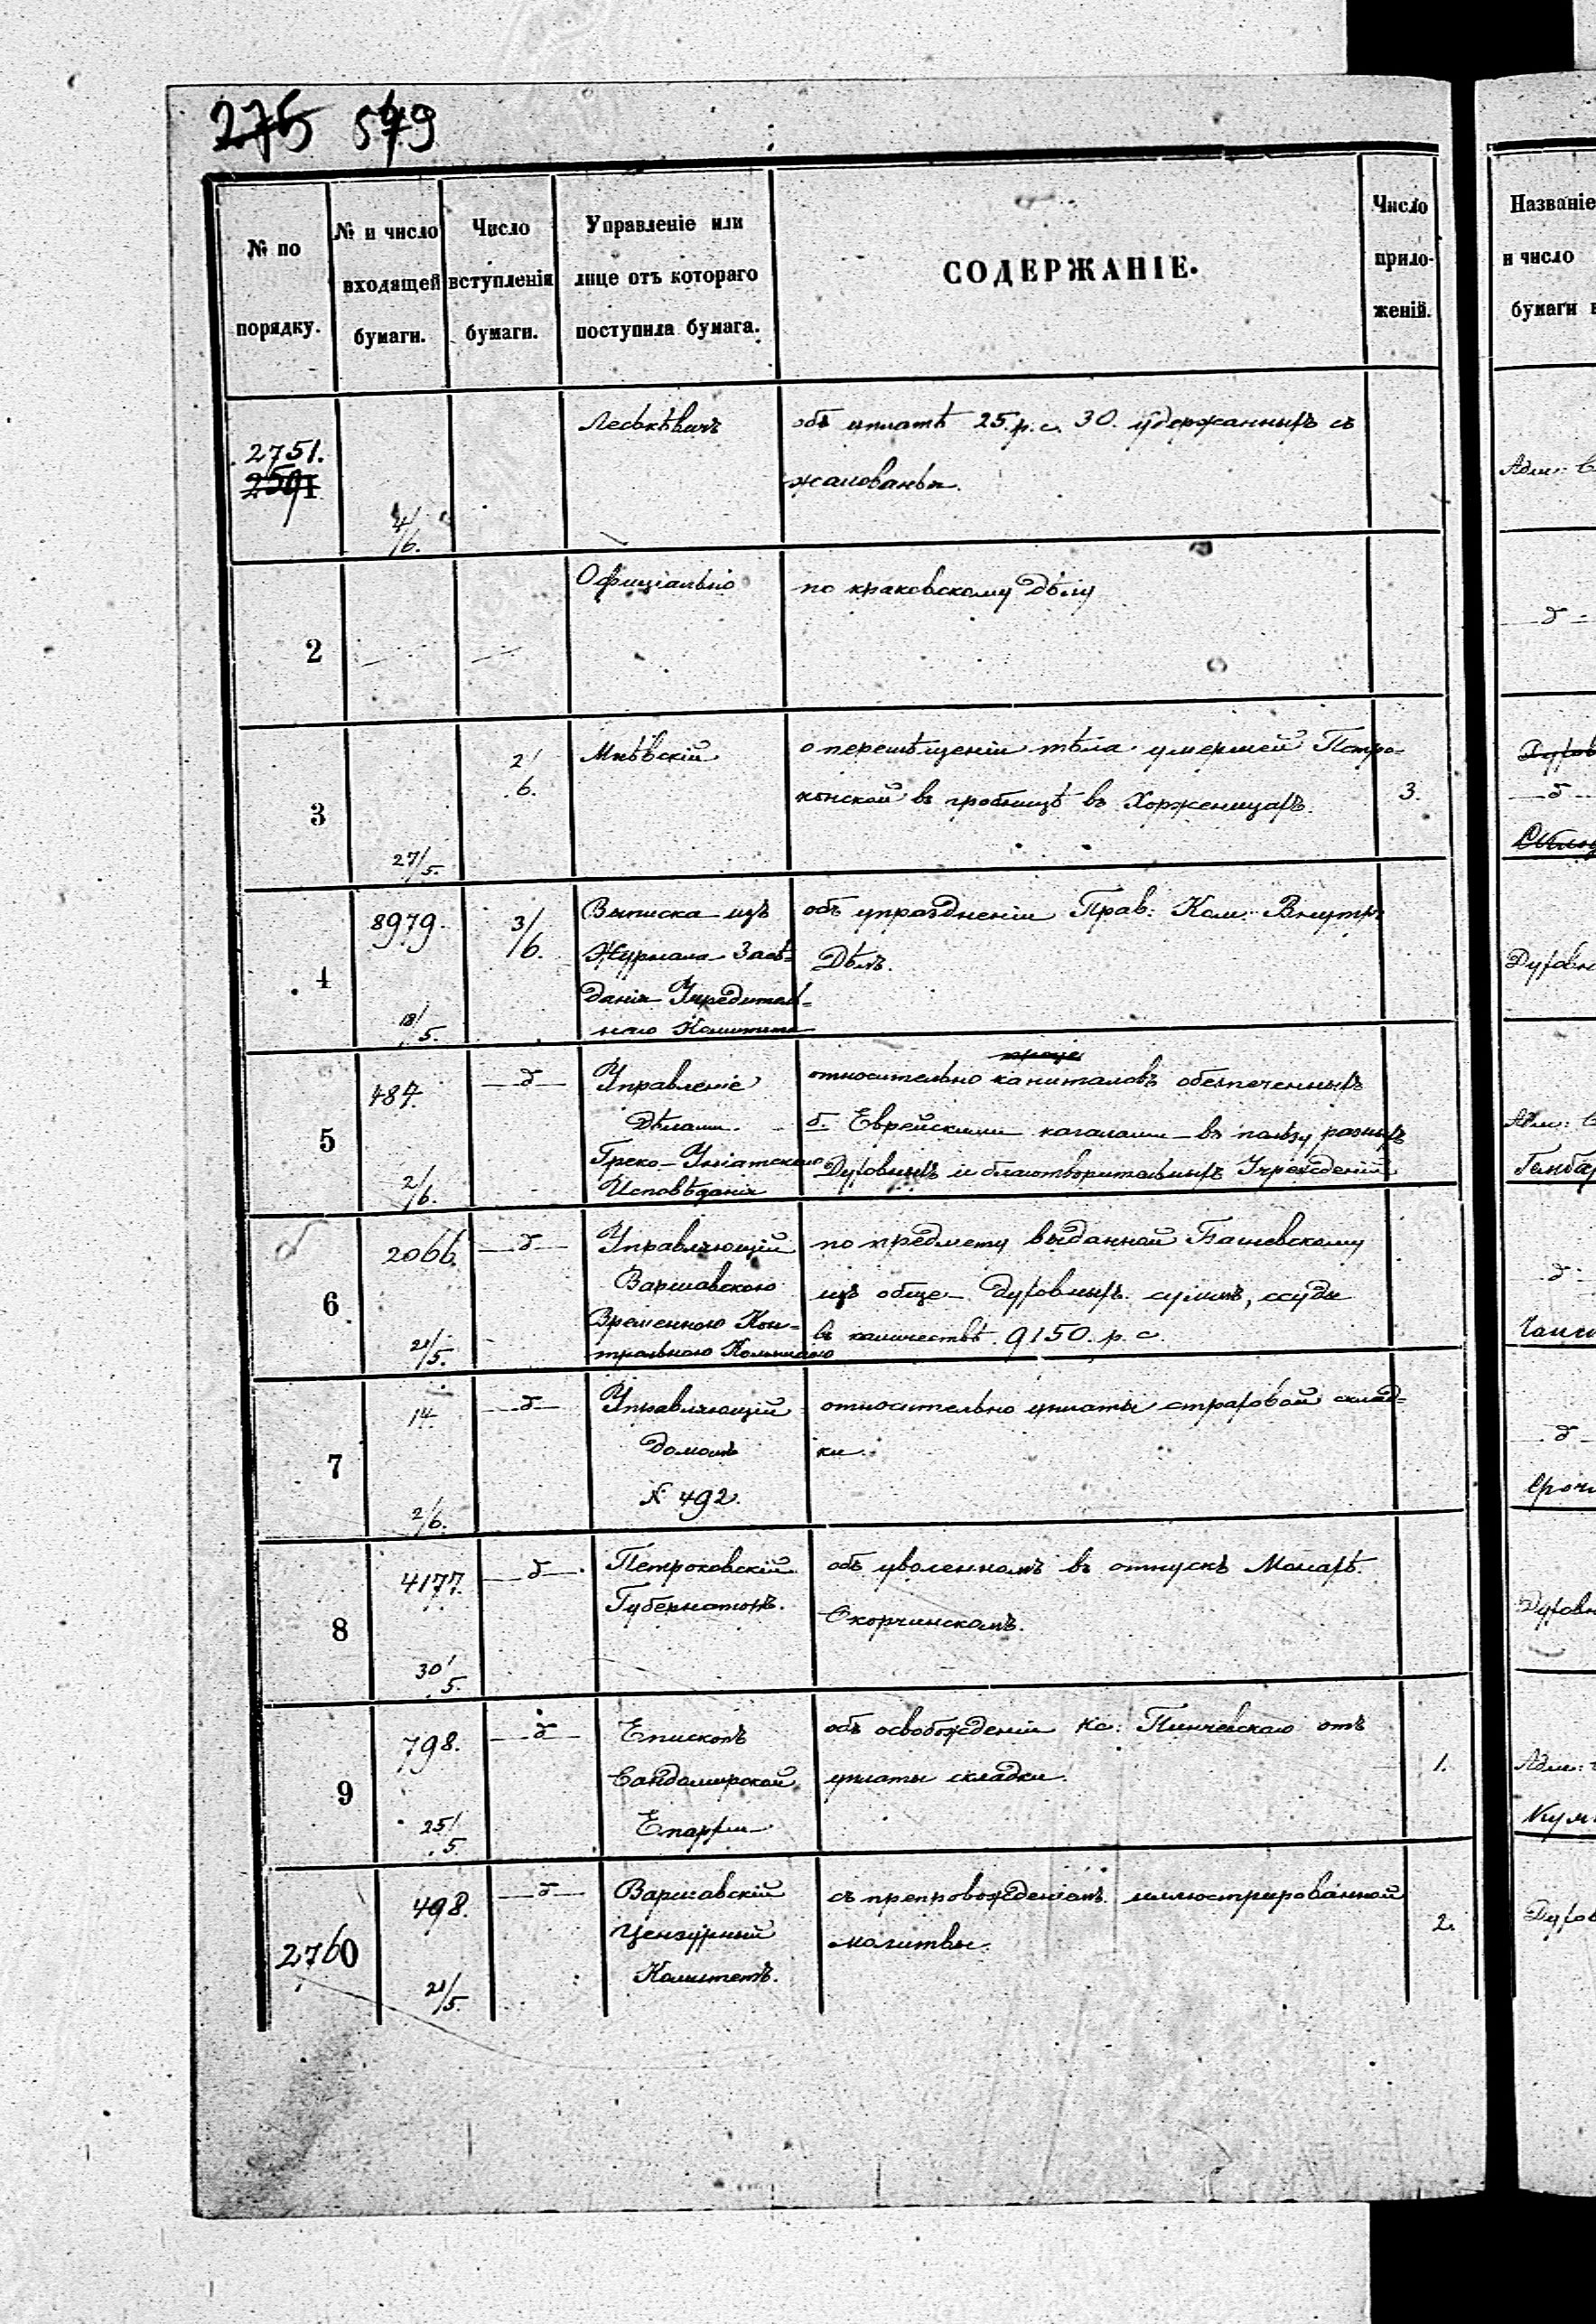 275 579
№ по порядку.
№ и число входящей бумаги.
Число вступленія бумаги.
Управленіе или лице отъ котораго поступила бумага.
СОДЕРЖАНІЕ.
Число приложеній.
2751.
2591
4/6.
Леськѣвичъ
объ уплатѣ 25 р. с. 30. удержанныхъ съ
жалованья.
2
Офиціально
по краковскому дѣлу
3
27/5.
2/6.
Мнѣвскій
о перемѣщеніи тѣла умершей Петро-
конской въ гробницѣ въ Хорженицахъ.
3.
4
8979.
18/5.
3/6.
Выписка изъ
Журнала Засѣ-
данія Учредитель-
наго Комитета
объ упраздненіи Прав: Ком: Внутр:
Дѣлъ.
5
484.
2/6.
—д—
Управленіе
Дѣлами
Греко-Уніатскаго
Исповѣданія
относительно капиталовъ обезпеченныхъ
б. Еврейскими кагалами въ пользу разныхъ
Духовныхъ и благотворительныхъ Учрежденій
6
2066.
21/5.
—д—
Управляющій
Варшавскою
Временною Кон-
трольною Комиссіею
по предмету выданной
изъ обще-духовныхъ суммъ, ссуды
въ количествѣ 9150. р. с.
7
14
2/6.
—д—
Управляющій
домомъ
№ 492.
относительно уплаты страховой склад-
ки.
8
4177.
30/5.
—д—
Петроковскій
Губернаторъ.
объ уволенномъ въ отпускъ Монахѣ
Скорчинскомъ.
9
798.
25/5
—д—
Епископъ
Сандомирской
Епархіи
объ освобожденіи Кс: Пинчевскаго отъ
уплаты складки.
1.
2760
498.
21/5.
—д—
Варшавскій
Цензурный
Комитетъ.
съ препровожденіемъ иллюстрированной
молитвы.
2.
Названіе
и число
бумаги
Адм:
—д—
—д—
Духовн
Адм:
—д—
—д—
Духовн
Адм:
Духов